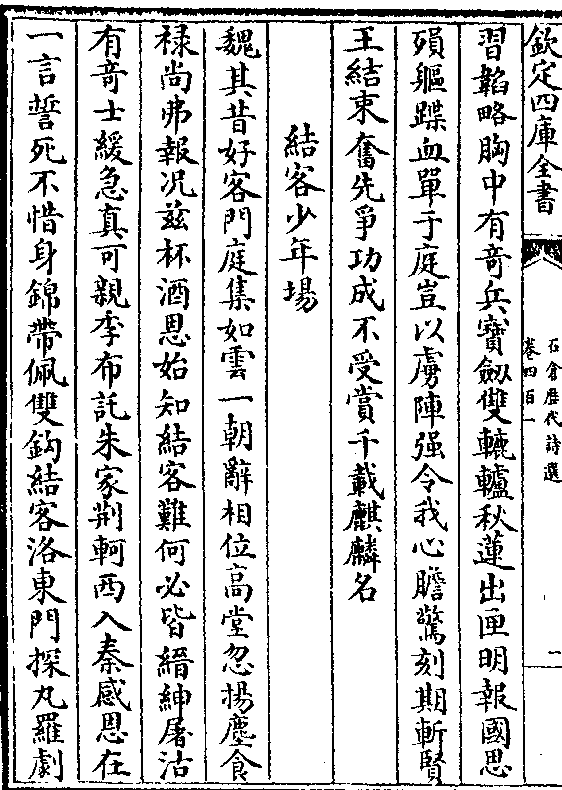 欽定四庫全書
石倉歷代詩選
卷四百一
二
習韜略胸中有奇兵寶劔雙轆轤秋蓮出匣明報國思
殞軀蹀血單于庭豈以虜陣强令我心膽驚刻期斬賢
王結束奮先爭功成不受賞千載麒麟名
結客少年場
魏其昔好客門庭集如雲一朝辭相位高堂忽揚塵食
禄尚弗報况兹杯酒恩始知結客難何必皆縉紳屠沽
有竒士緩急真可親季布託朱家荆軻西入秦感恩在
一言誓死不惜身錦帶佩雙鈎結客洛東門探丸羅劇